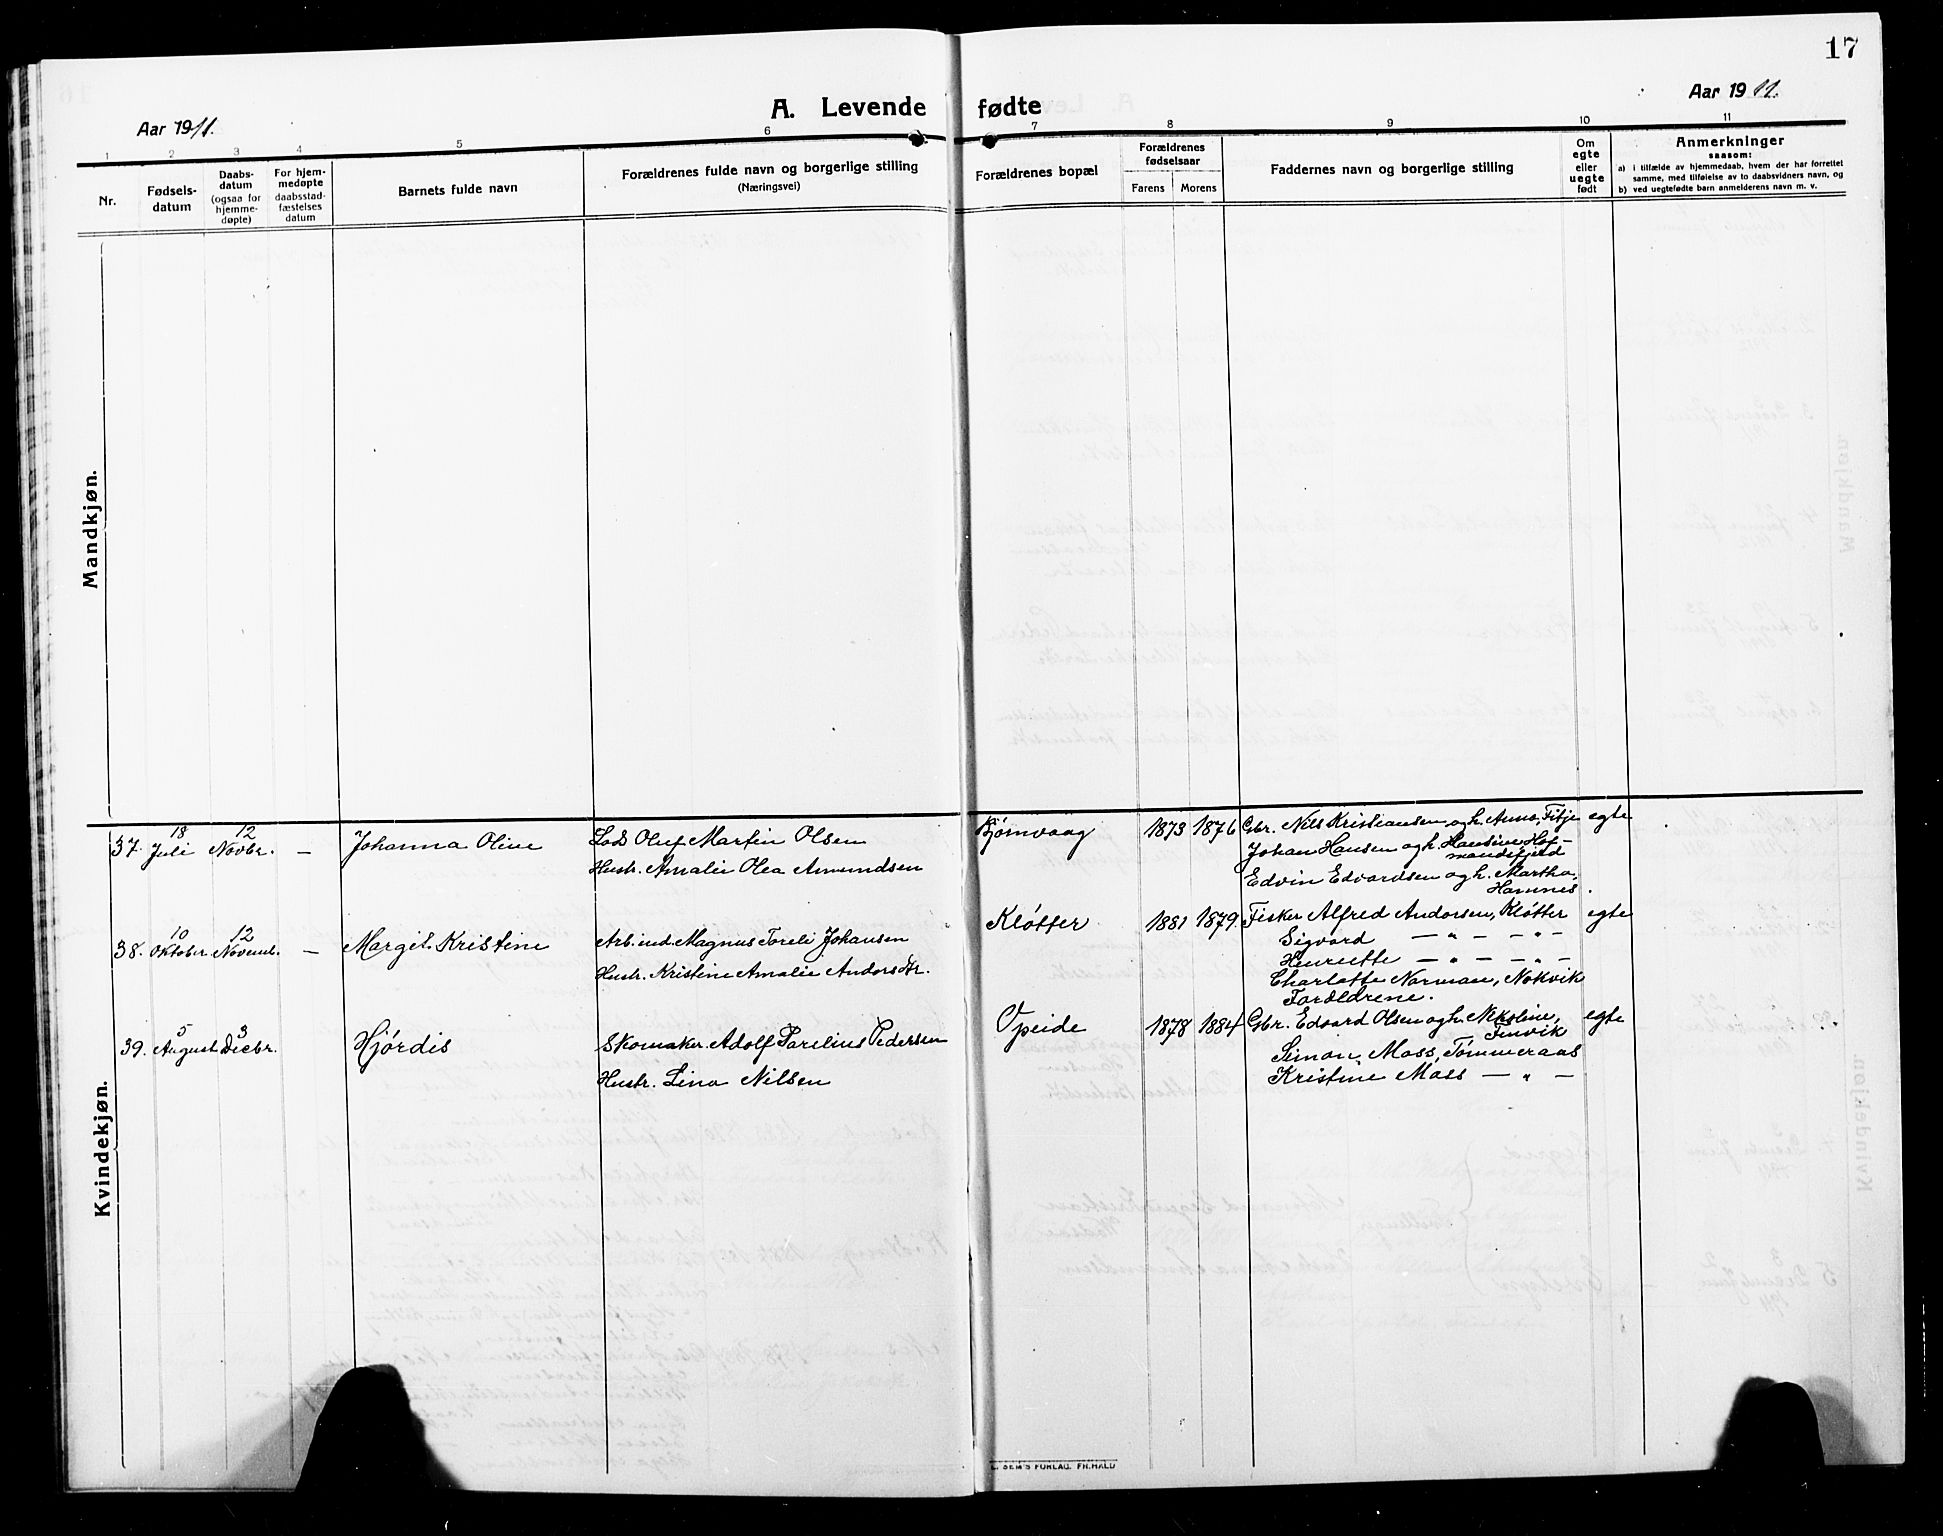 17
A. Levende fødte
Aar 1911.
Aar 1911.
1 2 3 4 5 6 7 8 9 10 11
Nr.
Fødsels-
datum
Daabs-
datum
(ogsaa for
hjemme-
døpte)
For hjem-
medøpte
daabsstad-
fæstelses
datum
Barnets fulde navn
Forældrenes fulde navn og borgerlige stilling
(Næringsvei)
Forældrenes bopæl
Forældrenes
fødselsaar
Farens Morens
Faddernes navn og borgerlige stilling
Om
egte
eller
uegte
født
Anmerkninger
saasom:
a) i tilfælde av hjemmedaab, hvem der har forrettet
samme, med tilføielse av to daabsvidners navn, og
b) ved uegtefødte barn anmelderens navn m. v.
Mandkjøn.
Kvindekjøn.
37. 18 Juli 12 Novbr. — Johanna Oline
Lods Oluf Martin Olsen
Hustr. Amalie Olea Amundsen
1873 1876
Gbr. Nils Kristiansen og h. Anna, Fitje
Johan Hansen og h. Hansine Hof-
mandsfjeld
Edvin Edvardsen og h. Martha,
Hamnes.
egte
38. 10 Oktober 12 Novemb. — Margit Kristine
Arb. ind. Magnus Toreli Johansen
Hustr. Kristine Amalie Andorsdtr.
Kløtter 1881 1879
Fisker Alfred Andorsen, Kløtter
Sigvard — " — — " —
Henriette — " — — " —
Charlotte Norman, Nokvik
Forældrene.
egte
39. 5 August 3 Decbr. Hjørdis
Skomaker Adolf Parelius Pedersen
Hustr. Lina Nilsen
Opeide 1878 1884
Gbr. Edvard Olsen og h. Nikoline,
Finvik
Simon Moss, Tømmeraas
Kristine Moss — " —
egte
SEM'S FORLAG. FR. HALD